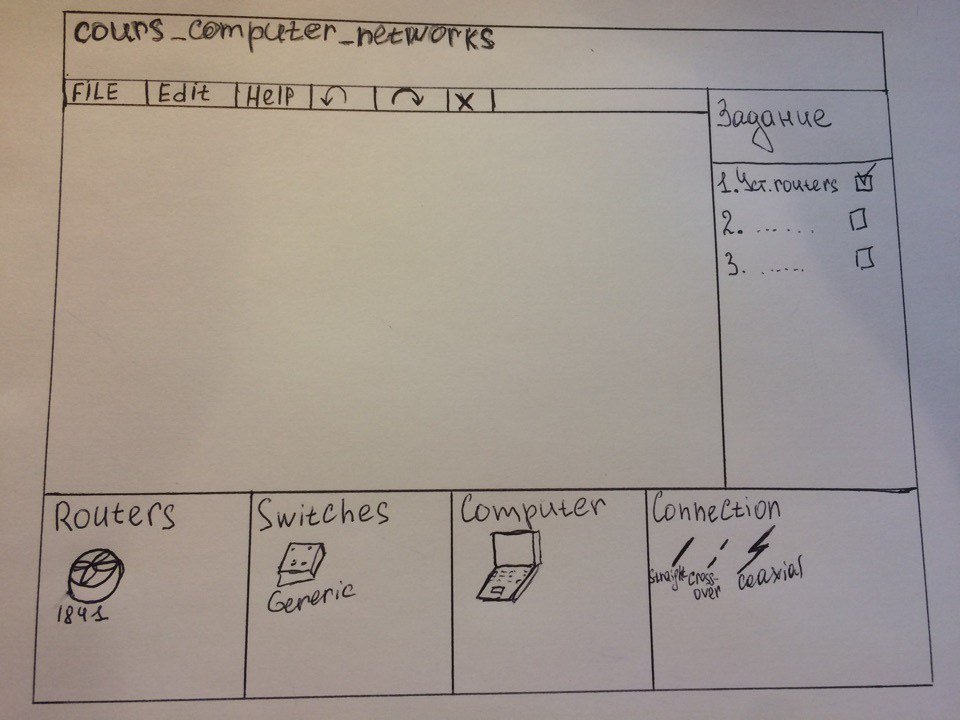 cours_computer_networks
FILE Edit Help X
Задание
1. Уст. routers
2. ......
3. ......
Routers
1841
Switches
Generic
Computer
Connection
Straight Cross-over coaxial